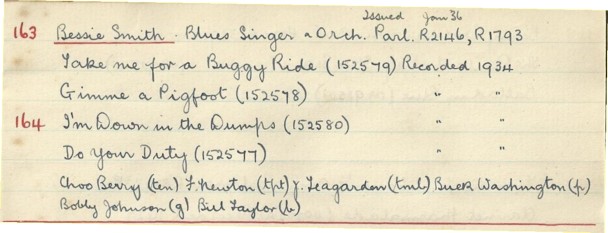 Issued Jan 36
163 Bessie Smith. Blues Singer & Orch. Parl. R2146, R1793
Take me for a Buggy Ride (152579) Recorded 1934
Gimme a Pigfoot (152578) " "
164 I'm Down in the Dumps (152580) " "
Do Your Duty (152577) " "
Choo Berry (ten) F. Newton (tpt) J. Teagarden (tmb) Buck Washington (p)
Bobby Johnson (g) Bill Taylor (b)